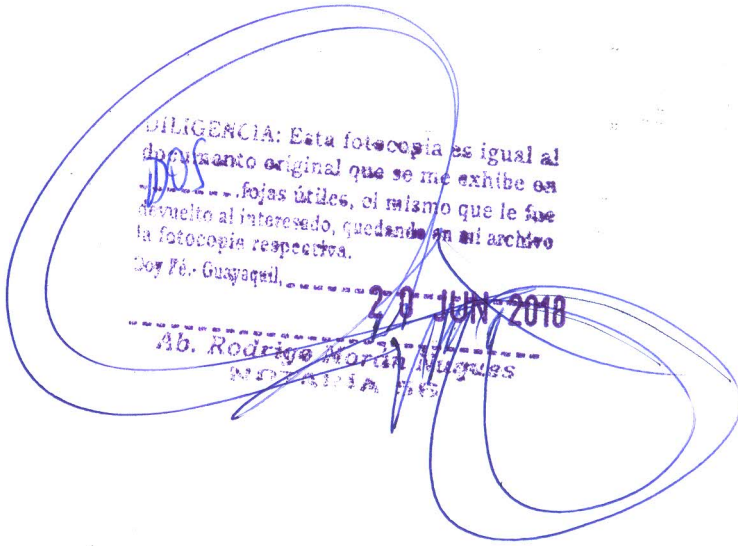 DILIGENCIA: Esta fotocopia es igual al
documento original que se me exhibe en
DOS fojas útiles, el mismo que le fue
devuelto al interesado, quedando en mi archivo
la fotocopia respectiva.
Doy Fé.- Guayaquil,
JUN 2018
Ab. Rodrigo Morán Nuques
NOTARIA